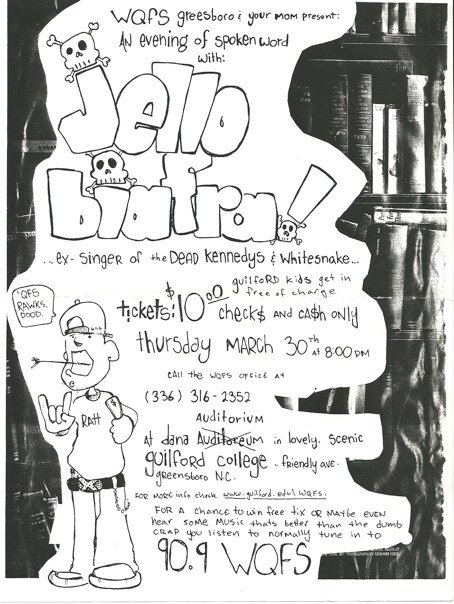 WQFS greesboro & your mom present:
AN evening of spoken word
with:
Jello
biafra!
...ex-singer of the DEAD Kennedys & Whitesnake...
guilford kids get in
free of charge
'QFS
RAWKS,
DOOD.
tickets: $10.00 check$ and ca$h only
thursday MARCH 30th at 8:00 pm
call the WQFS office at
(336) 316-2352
RATT
Auditorium
At dana Auditoreum in lovely, scenic
guilford college . friendly ave.
greensboro N.C.
FOR MORE info check www.guilford.edu/WQFS.
FOR A chance to win free tix OR MAYbe EVEN
hear some MUSIC thats better than the dumb
CRAP you listen to normally tune in to
90.9 WQFS